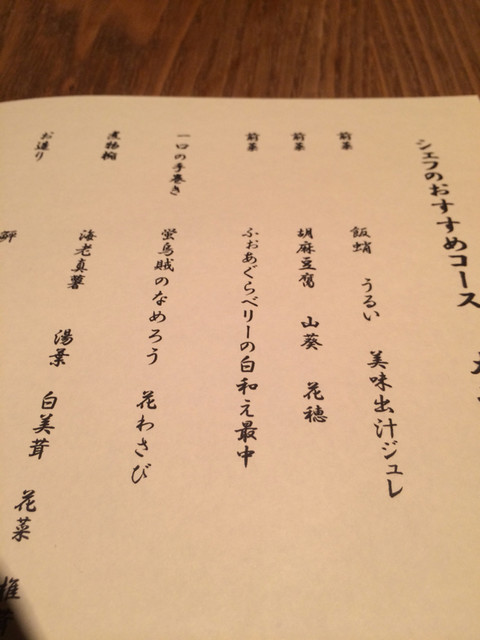 シェフのおすすめコース
前菜 飯蛸 うるい 美味出汁ジュレ
前菜 胡麻豆腐 山葵 花穂
前菜 ふぉあぐらベリーの白和え最中
一口の手巻き 蛍烏賊のなめろう 花わさび
煮物椀 海老真薯 湯葉 白美茸 花菜
お造り